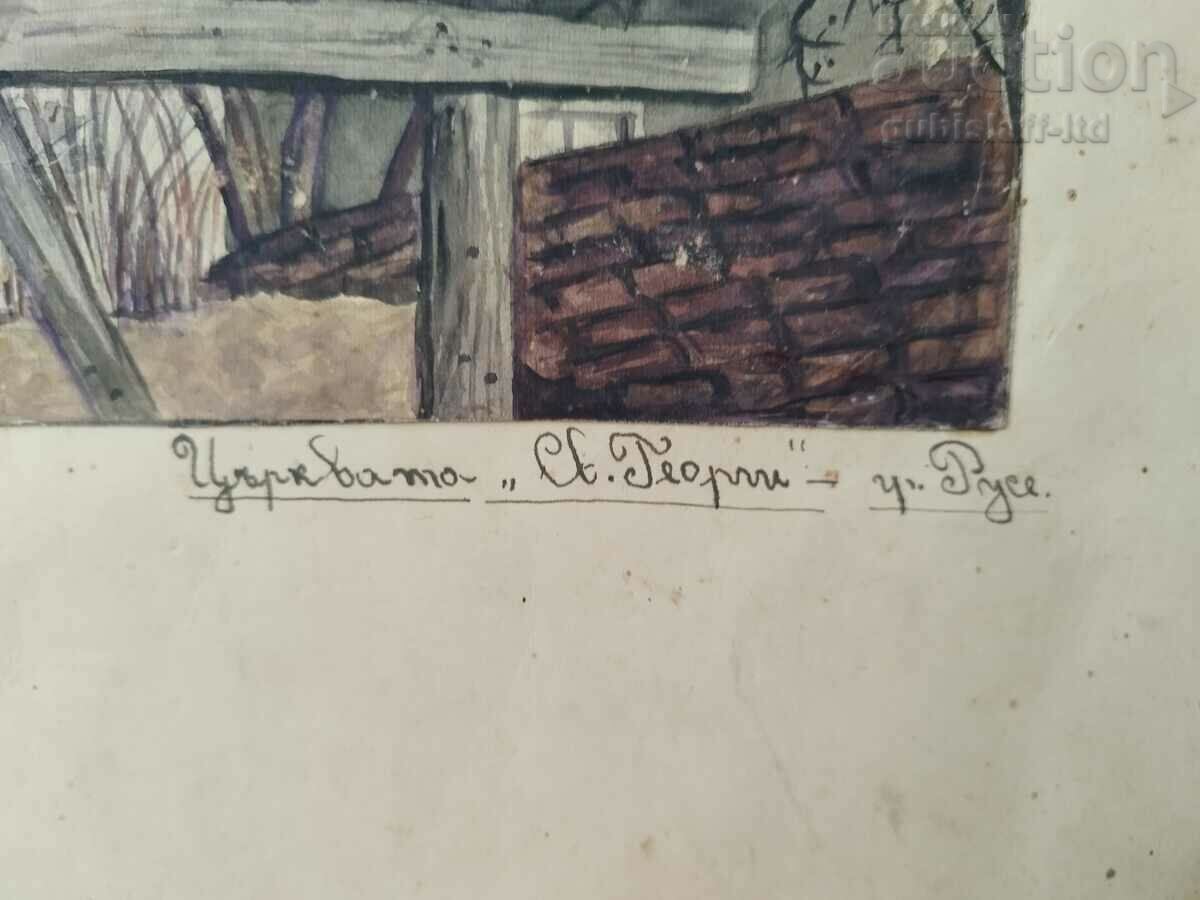 auction
gubislaff-ltd
Църквата „Св. Георги" – гр. Русе.